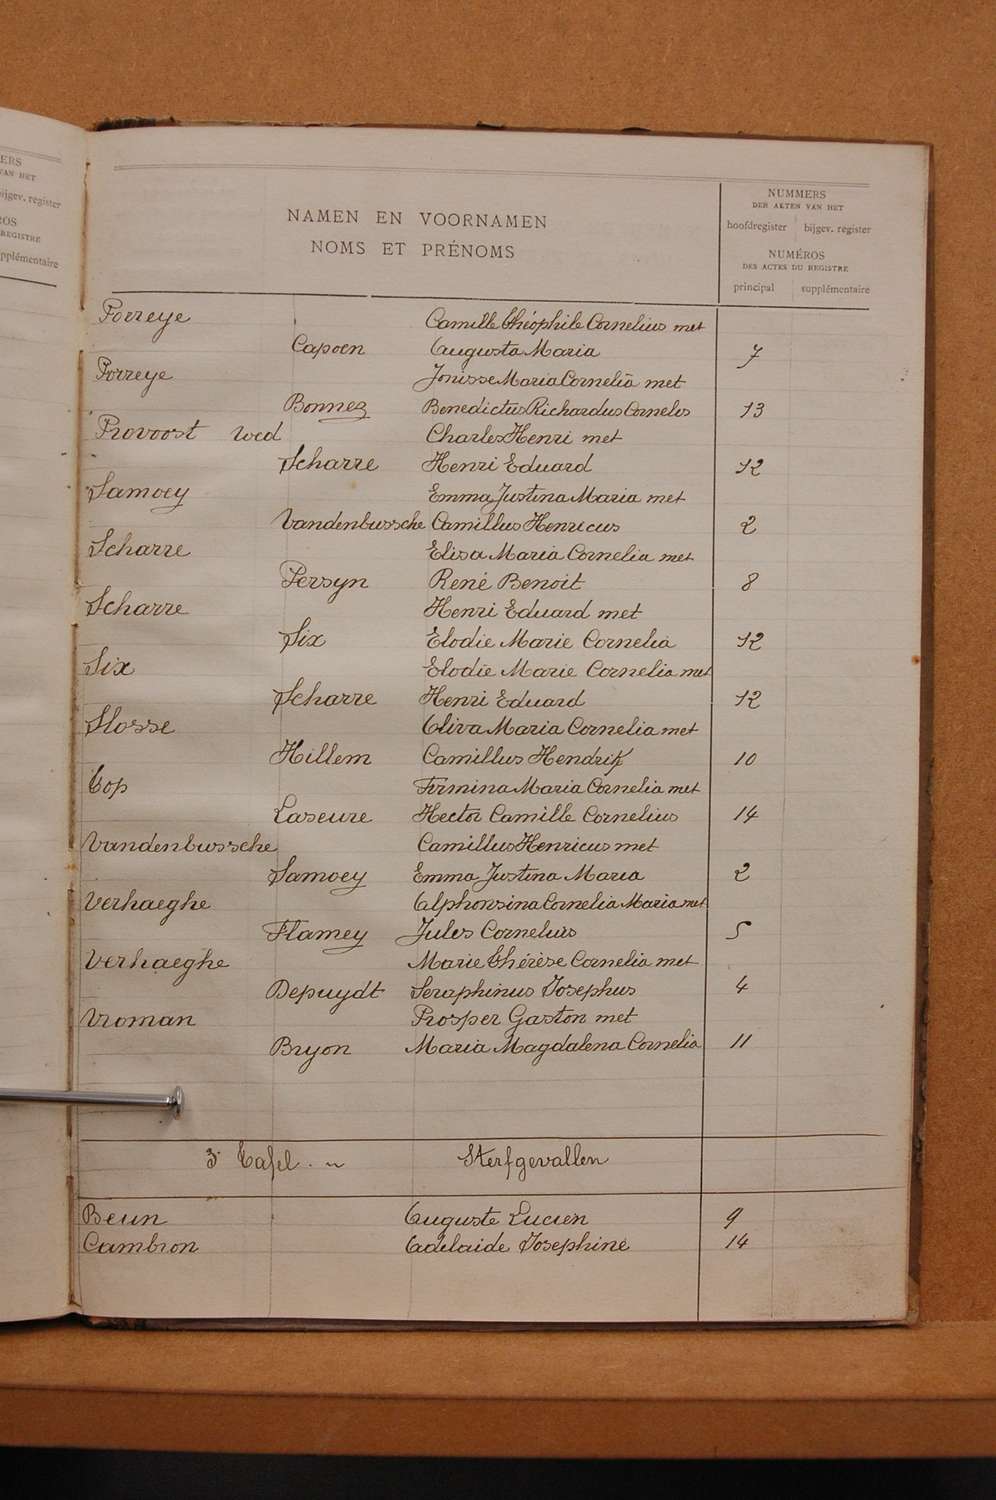 ERS
VAN HET
bijgev. register
ROS
REGISTRE
pplémentaire
NAMEN EN VOORNAMEN
NOMS ET PRÉNOMS
NUMMERS
DER AKTEN VAN HET
hoofdregister bijgev. register
NUMÉROS
DES ACTES DU REGISTRE
principal supplémentaire
Porreye Camille Théophile Cornelius met
Capoen Augusta Maria 7
Porreye Jonisse Maria Cornelia met
Bonnez Benedictus Richardus Cornelis 13
Provoost wed Charles Henri met
Scharre Henri Eduard 12
Samoey Emma Justina Maria met
Vandenbussche Camillus Henricus 2
Scharre Elisa Maria Cornelia met
Persyn René Benoit 8
Scharre Henri Eduard met
Six Elodie Marie Cornelia 12
Six Elodie Marie Cornelia met
Scharre Henri Eduard 12
Slosse Oliva Maria Cornelia met
Hillem Camillus Hendrik 10
Top Fermina Maria Cornelia met
Laseure Hector Camille Cornelius 14
Vandenbussche Camillus Henricus met
Samoey Emma Justina Maria 2
Verhaeghe Alphonsina Cornelia Maria met
Flamey Jules Cornelius 5
Verhaeghe Marie Thérèse Cornelia met
Depuydt Seraphinus Josephus 4
Vroman Prosper Gaston met
Bryon Maria Magdalena Cornelia 11
3e Tafel. " Sterfgevallen
Beun Auguste Lucien 9
Cambron Adelaide Josephine 14